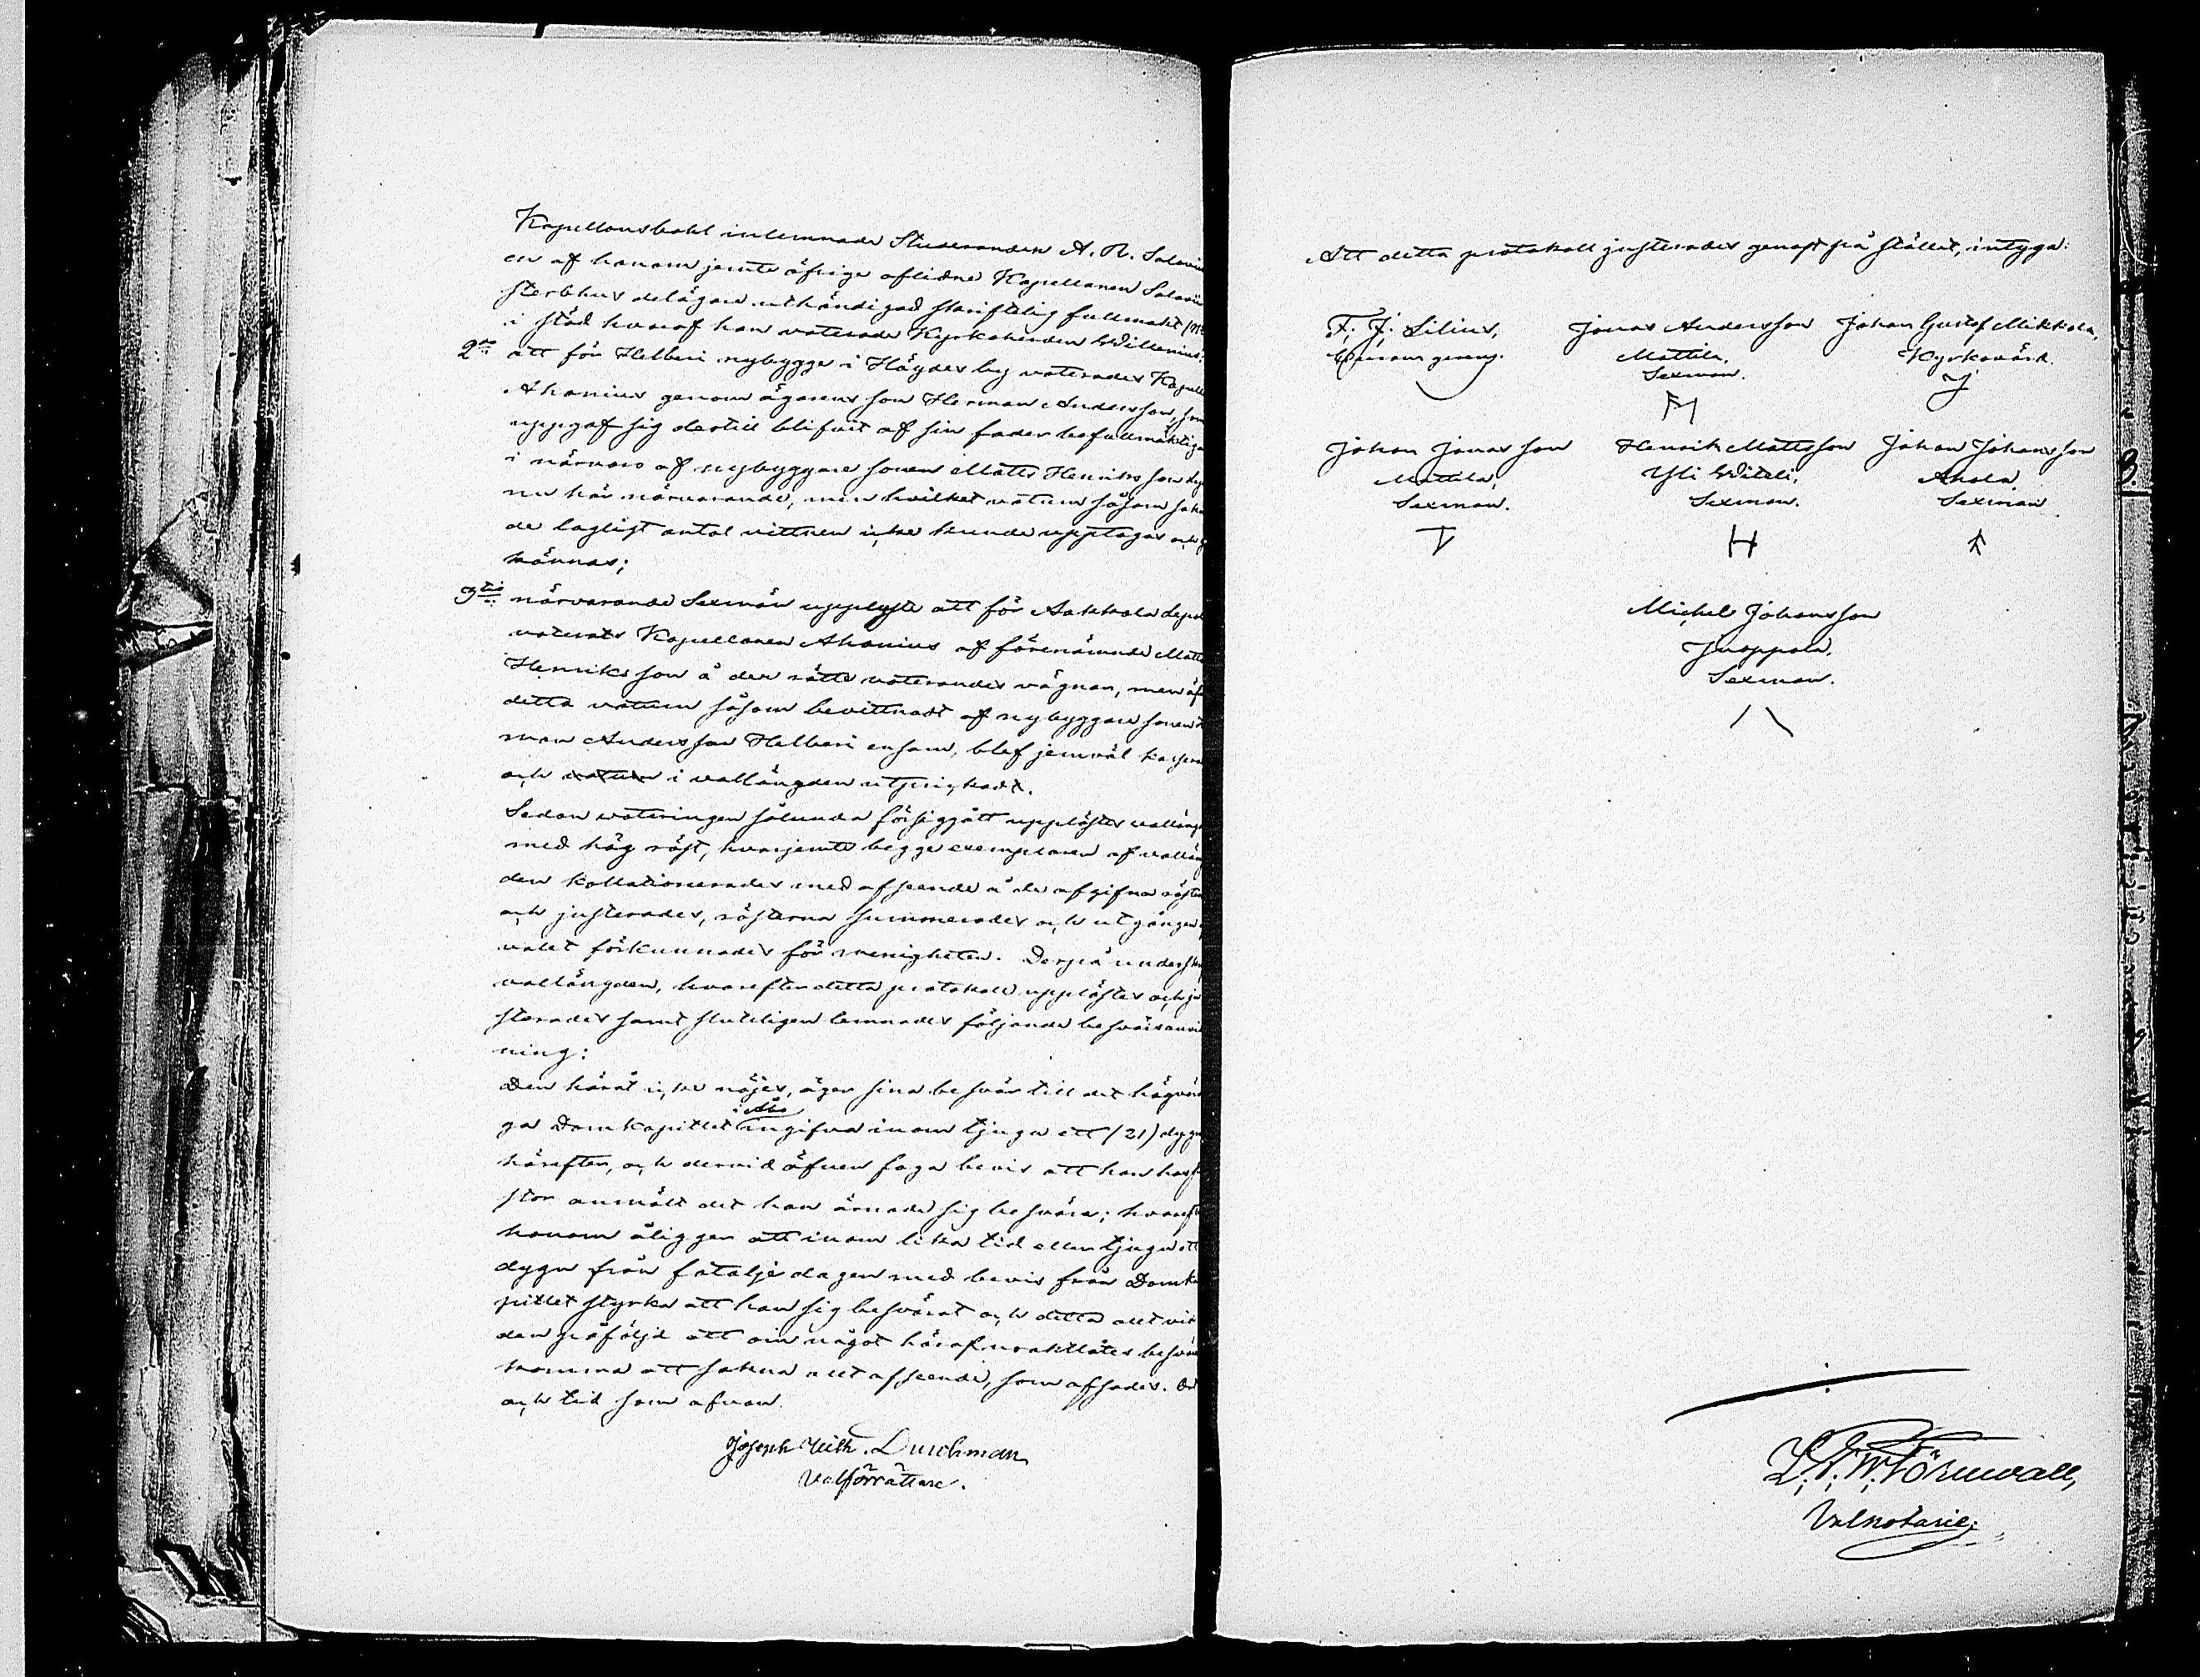 Kapellansbohl inlemnade Studeranden A. R. Salovius
en af honom jemte öfrige aflidne Kapellanen Salovii
sterbhus delägare uthändigad skriftelig fullmakt
i stöd hvaraf han voterade Kyrkoherden Willenius;
2:o att för Helberi nybygge i Höydes by voterades Kapell
Ahonius genom ägarens son Herman Andersson, som
uppgaf sig dertill blifvit af sin fader befullmäktiga
i närvaro af nybyggare sonen Matts Henriksson
nu här närvarande, men hvilket votum såsom sakna
de lagligt antal vittnen icke kunde upptagas och
kännas;
3:tio närvarande Sexmän upplyste att för Aakkola
voterats Kapellanen Ahonius af förenämnde Matts
Henriksson å den rätte voterandes vägnar, men äf
detta votum såsom bevittnadt af nybyggare sonen
man Andersson Helberi ensam, blef jemväl kassera
och votum i vallängden utprickadt.
Sedan voteringen sålunda försiggått upplästes valläng
med hög röst, hvarjemte begge exemplaren af valläng
den kollationerades med afseende å de afgifna röster
och justerades, rösterna summerades och utgången
valet förkunnades för menigheten. Derpå underskrefs
vallängden, hvarefter detta protokoll upplästes och ju
sterades samt sluteligen lemnades följande besvärsanvis
ning:
Den häråt icke nöjes, äger sina besvär till det högvördi
i Åbo
ga Domkapitlet ingifva inom tjugu ett (21) dygn
härefter, och dervid äfven foga bevis att han hos
stor anmält det han ärnade sig besvära; hvaref
honom åligger att inom lika tid eller tjugu ett
dygn från fataljedagen med bevis från Domka
pitlet styrka att han sig besvärat och detta allt vid
den påföljd att om något häraf uraktlåtes besvären
komma att sakna allt afseende, som afsades. Ort
och tid som ofvan.
Joseph Wilh. Durchman
Valförrättare.
Att detta protokoll justerades genast på stället, intyga:
F. J. Lilius,
Jonas Andersson
Mattila,
Sexman.
Johan Gustaf Mikkola,
Kyrkovärd.
Johan Jonasson
Mattila,
Sexman.
Henrik Mattsson
Yli Witeli,
Sexman.
Johan Johansson
Ahola
Sexman
Michel Johansson
Juoppola,
Sexman.
Valnotarie.